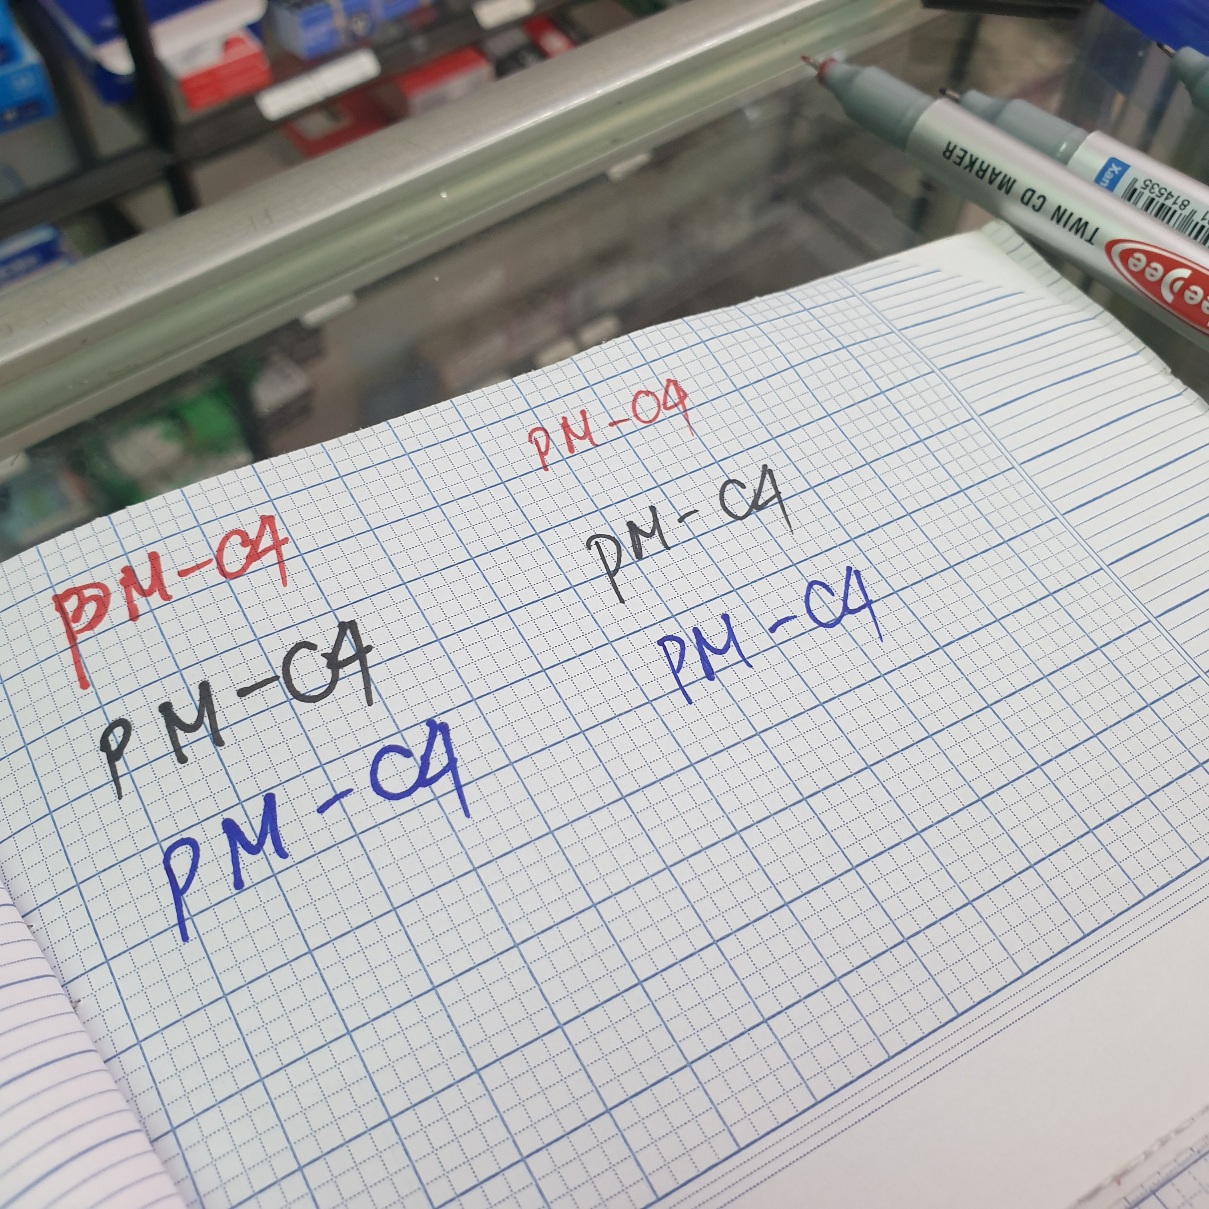 PM-04
PM-04
PM-04
PM-04
PM-04
PM-04
TWIN CD MARKER
Xan
814535